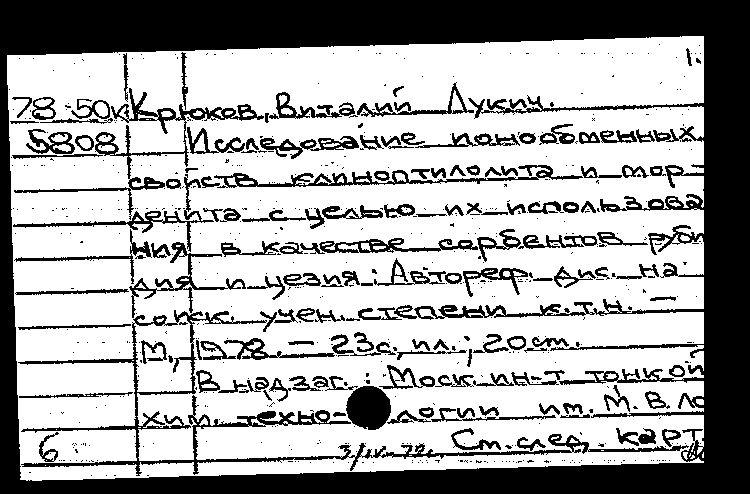 1.
78-50к Крюков, Виталий Лукич.
5808 Исследование ионообменных
свойств клиноптилолита и мор-
денита с целью их использова
ния в качестве сорбентов руби
дия и цезия: Автореф. дис. на
соиск. учен. степени к.т.н. —
М., 1978. — 23с., ил.; 20 cm.
В надзаг.: Моск. ин-т тонкой
хим. техно- логии им. М. В. Ло
6 См. след. карт